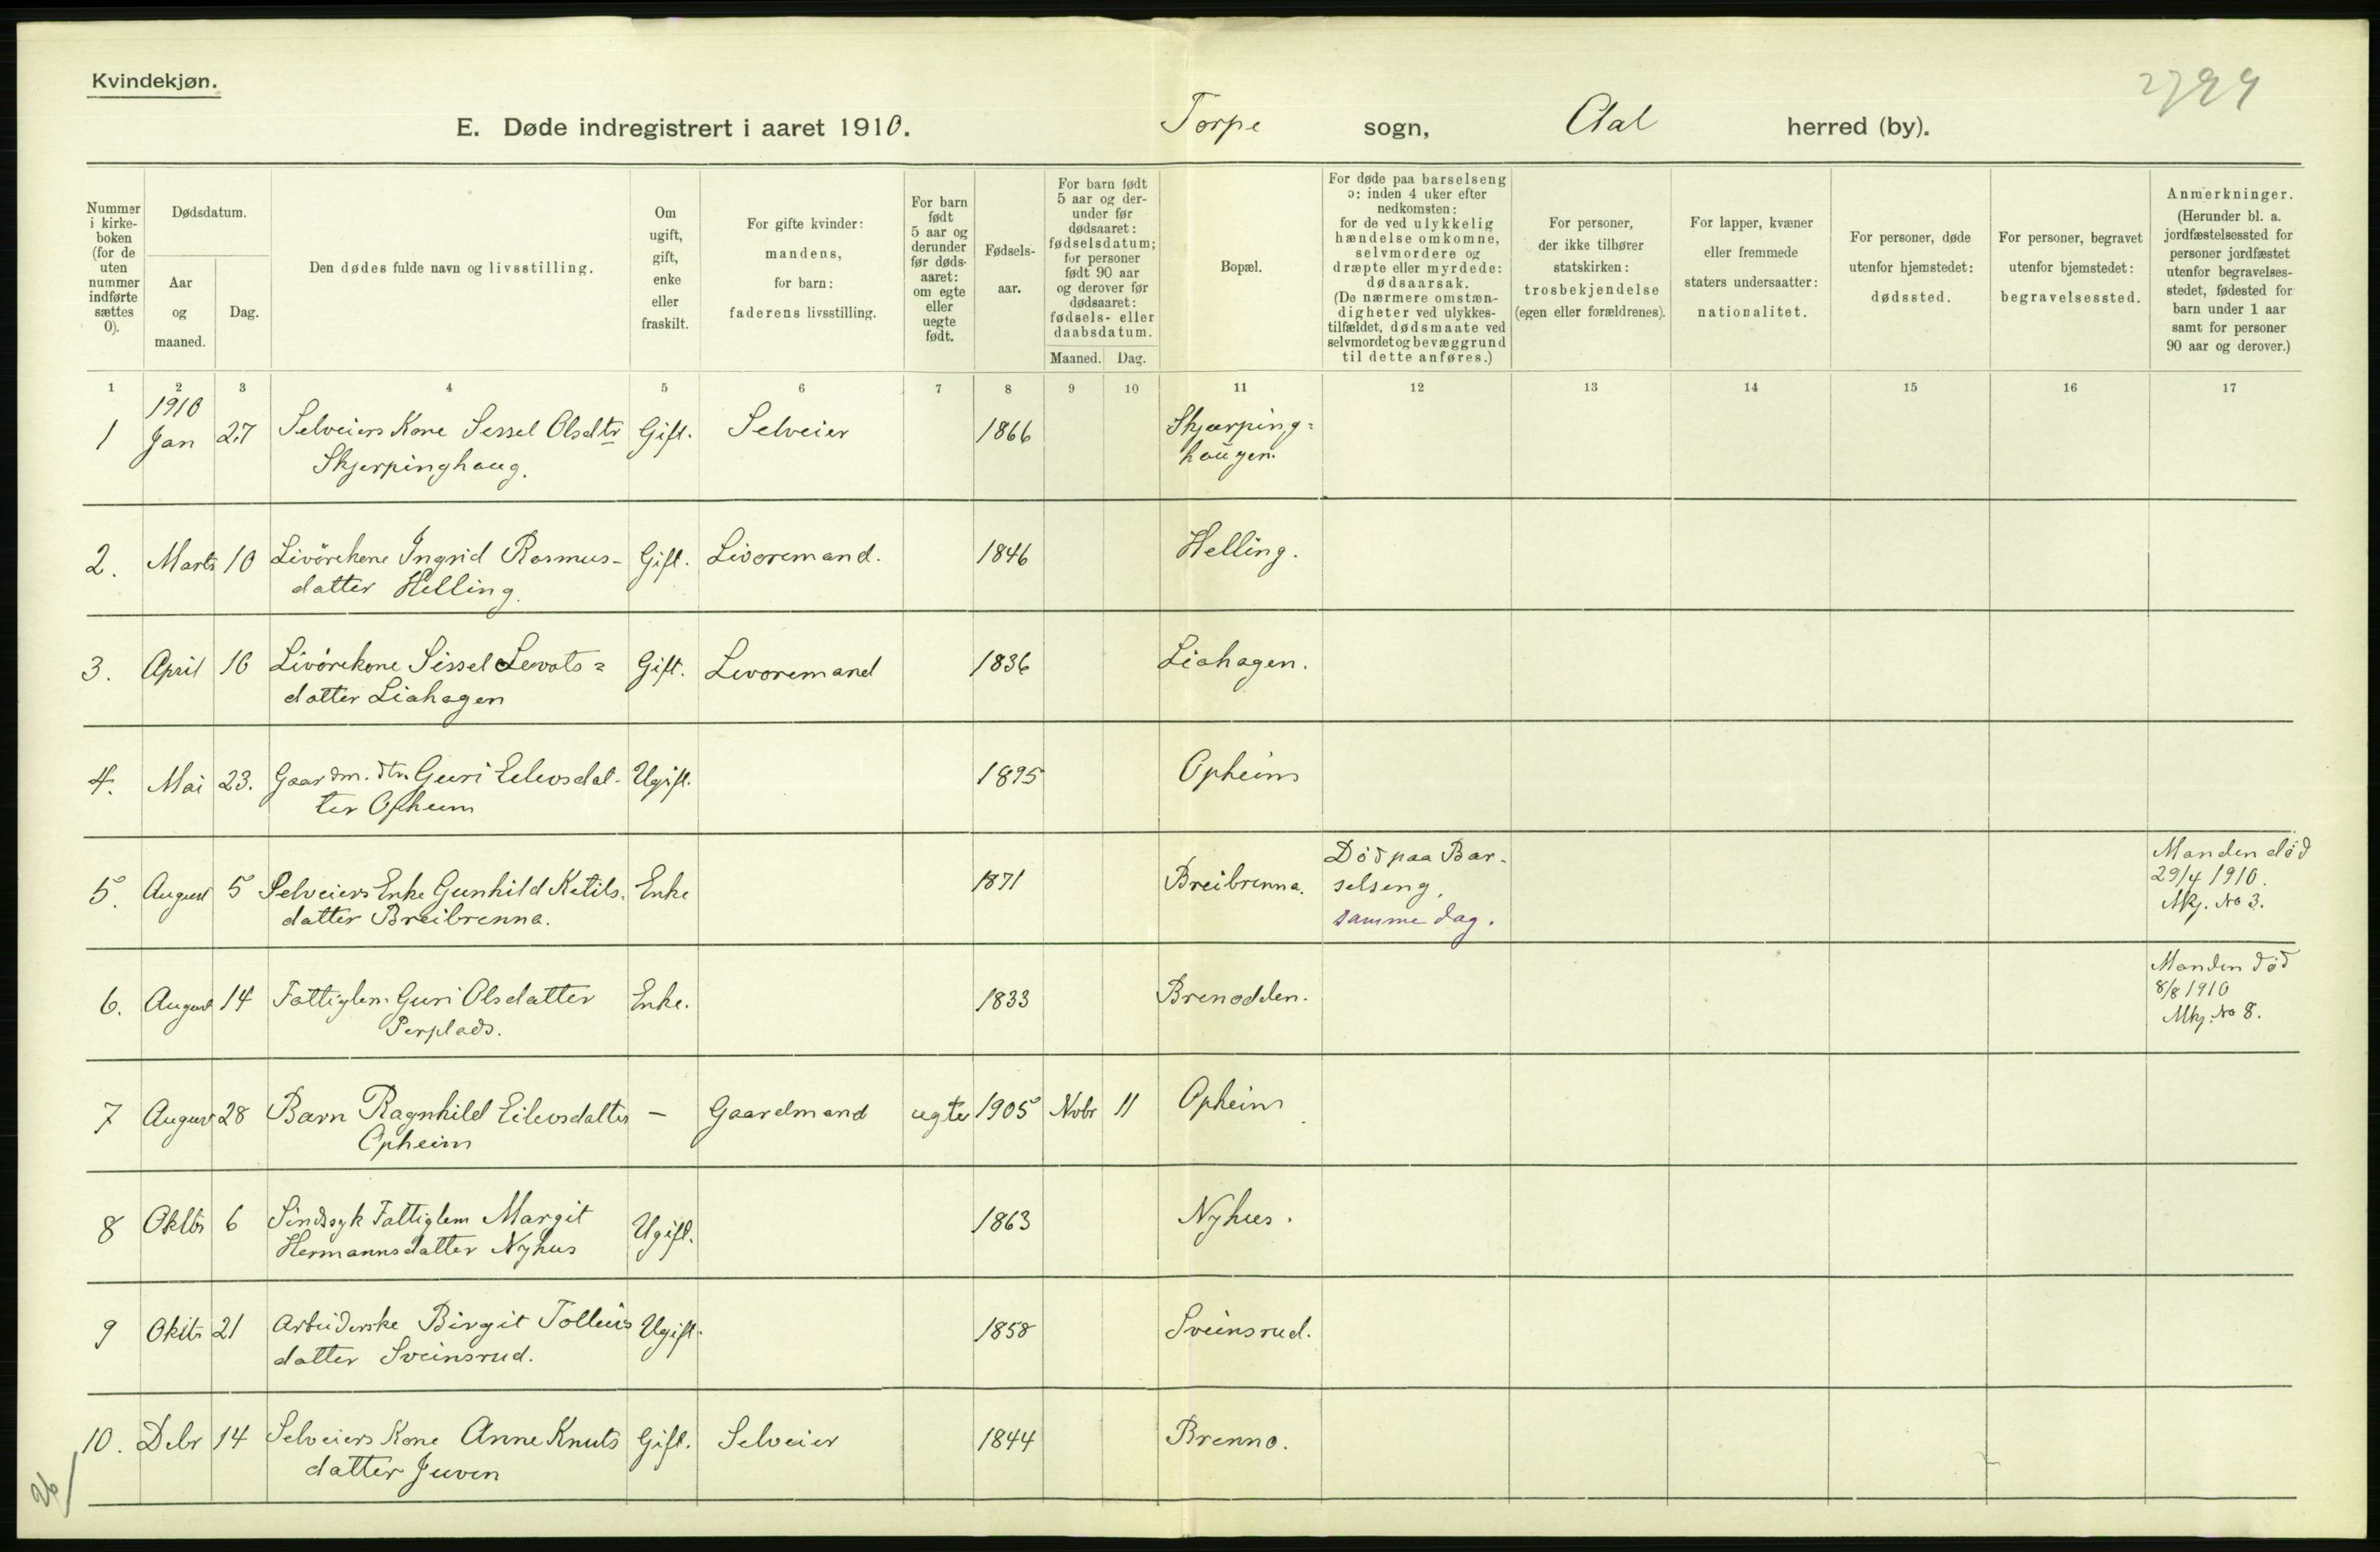 Kvindekjøn.
E. Døde indregistrert i aaret 1910. Torpe sogn, Aal herred (by).
Nummer i kirkeboken (for de uten nummer indførte sættes 0).
Dødsdatum.
Aar og maaned.
Dag.
Den dødes fulde navn og livsstilling.
Om ugift, gift, enke eller fraskilt.
For gifte kvinder: mandens, for barn: faderens livsstilling.
For barn født 5 aar og derunder før dødsaaret: om egte eller uegte født.
Fødselsaar.
For barn født 5 aar og derunder før dødsaaret: fødselsdatum; for personer født 90 aar og derover før dødsaaret: fødsels- eller daabsdatum.
Maaned. Dag.
Bopæl.
For døde paa barselseng ɔ: inden 4 uker efter nedkomsten: for de ved ulykkelig hændelse omkomne, selvmordere og dræpte eller myrdede: dødsaarsak. (De nærmere omstændigheter ved ulykkestilfældet, dødsmaate ved selvmordet og bevæggrund til dette anføres.)
For personer, der ikke tilhører statskirken: trosbekjendelse (egen eller forældrenes).
For lapper, kvæner eller fremmede staters undersaatter: nationalitet.
For personer, døde utenfor hjemstedet: dødssted.
For personer, begravet utenfor hjemstedet: begravelsessted.
Anmerkninger. (Herunder bl. a. jordfæstelsessted for personer jordfæstet utenfor begravelsesstedet, fødested for barn under 1 aar samt for personer 90 aar og derover.)
1 2 3 4 5 6 7 8 9 10 11 12 13 14 15 16 17
1910
1 Jan 27 Selveiers Kone Sessel Olsdtr Gift. Selveier 1866 Skjærping=
Skjerpinghaug. haugen.
2. Marts 10 Livörekone Ingrid Rasmus- Gift. Livoremand. 1846 Helling.
datter Helling.
3. April 16 Livörekone Sissel Levots= Gift. Levoremand 1836 Liahagen.
datter Liahagen
4. Mai 23. Gaardm. dtr. Guri Eilevsdat- Ugift. 1895 Opheim
ter Opheim
5. August 5 Selveiers Enke Gunhild Ketils- Enke 1871 Breibrenna. Död paa Bar-
selseng,
samme dag.
datter Breibrenna.
Manden död
29/4 1910.
Mkj. No 3.
6. August 14 Fattiglem Guri Olsdatter Enke. 1833 Brenodden.
Perplads.
Manden död
8/8 1910
Mkj. No 8.
7 August 28 Barn Ragnhild Eilevsdatter — Gaardmand egte 1905 Novbr 11 Opheim
Opheim
8 Oktbr 6 Sindssyk Fattiglem Margit Ugift. 1863 Nyhus.
Hermannsdatter Nyhus
9 Oktbr 21 Arbeiderske Birgit Tolleivs Ugift. 1858 Sveinsrud.
datter Sveinsrud.
10. Debr 14 Selveiers Kone Anne Knuts Gift. Selveier 1844 Brenno.
datter Juven
26